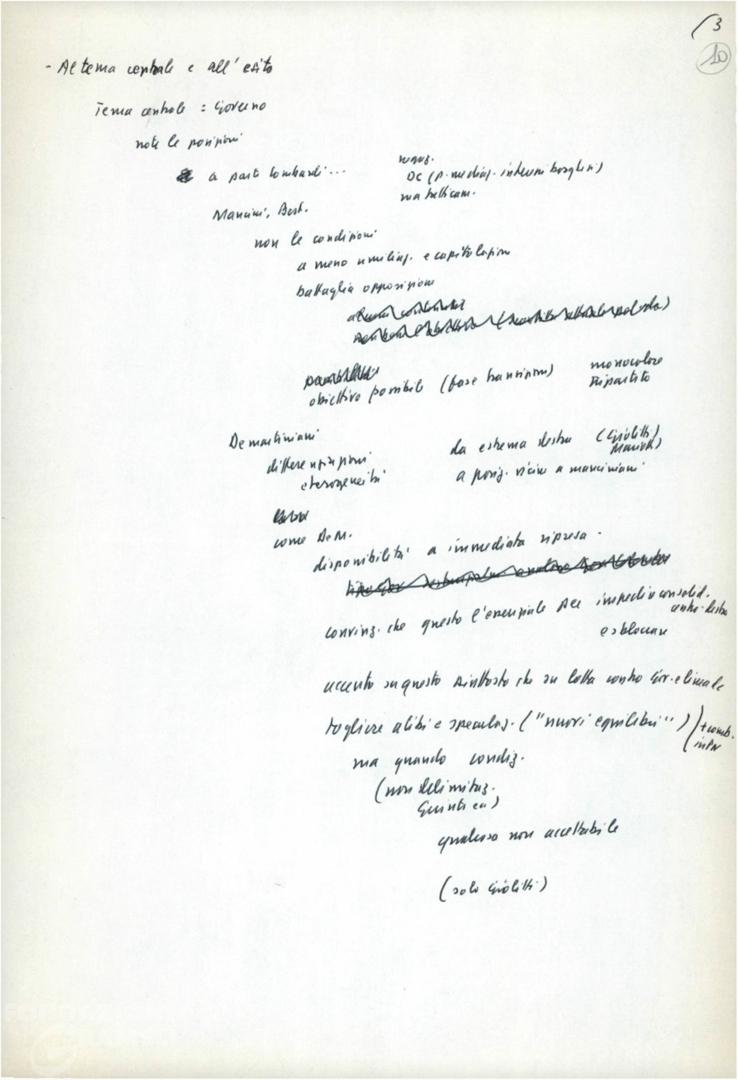 3
10
- Al tema centrale e all'esito
Tema centrale = Governo
note le posizioni
a parte Lombardi...
DC (p. mediaz. interessi borghesi)
ma
Mancini, Bert.
non le condizioni
a meno umiliaz. e capitolazioni
battaglia opposizione
obiettivo possibile (fase transizione)
monocolore
bipartito
Demartiniani
differenziazioni
eterogeneità
da estrema destra (Giolitti
Mariotti)
a posiz. vicine a manciniani
come DeM.
disponibilità a immediata ripresa.
convinz. che questo l'essenziale per impedire consolid.
centro-destra
e sbloccare
accento su questo piuttosto che su lotta contro Gov. e linea dc
togliere alibi e speculaz. ("nuovi equilibri")
ma quando condiz.
(non delimitaz.
Giunte ecc)
qualcosa non accettabile
(solo Giolitti)